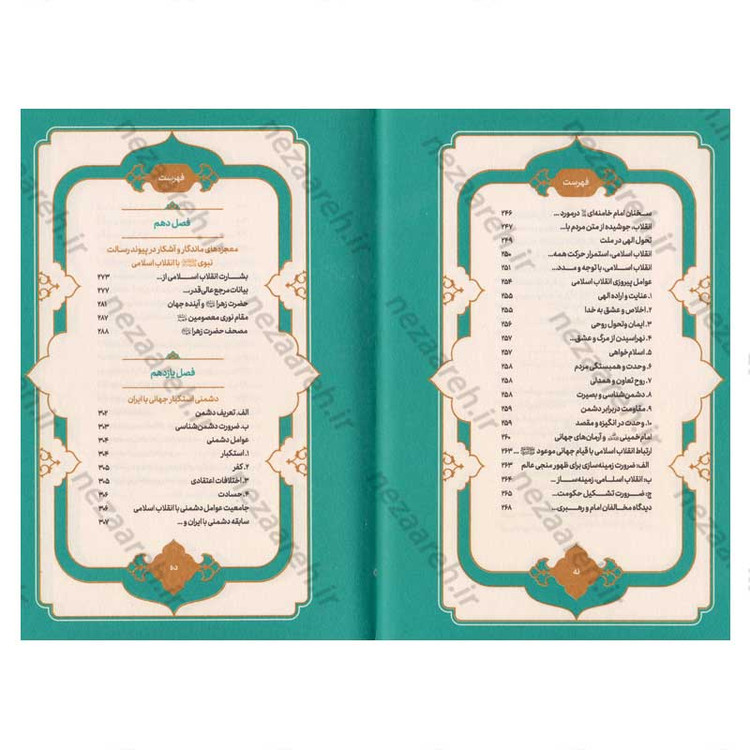 فهرست
سخنان امام خامنه‌ای درمورد... ۲۴۶
انقلاب، جوشیده از متن مردم با... ۲۴۷
تحول الهی در ملت ۲۴۹
انقلاب اسلامی، استمرار حرکت همه... ۲۵۰
انقلاب اسلامی، با توجه و مدد... ۲۵۱
عوامل پیروزی انقلاب اسلامی ۲۵۴
۱. عنایت و اراده الهی ۲۵۵
۲. اخلاص و عشق به خدا ۲۵۵
۳. ایمان و تحول روحی ۲۵۶
۴. نهراسیدن از مرگ و عشق... ۲۵۷
۵. اسلام‌خواهی ۲۵۷
۶. وحدت و همبستگی مردم ۲۵۸
۷. روح تعاون و همدلی ۲۵۸
۸. دشمن‌شناسی و بصیرت ۲۵۸
۹. مقاومت در برابر دشمن ۲۵۹
۱۰. وحدت در انگیزه و مقصد ۲۵۹
امام خمینی و آرمان‌های جهانی ۲۶۰
ارتباط انقلاب اسلامی با قیام جهانی موعود ... ۲۶۳
الف: ضرورت زمینه‌سازی برای ظهور منجی عالم ۲۶۳
ب: انقلاب اسلامی، زمینه‌ساز... ۲۶۴
ج: ضرورت تشکیل حکومت... ۲۶۵
دیدگاه مخالفان امام و رهبری... ۲۶۸
نه
فهرست
فصل دهم
معجزه‌های ماندگار و آشکار در پیوند رسالت
نبوی با انقلاب اسلامی
بشارت انقلاب اسلامی از... ۲۷۳
بیانات مرجع عالی‌قدر... ۲۷۷
حضرت زهرا و آینده جهان ۲۸۱
مقام نوری معصومین ۲۸۷
مصحف حضرت زهرا ۲۸۸
فصل یازدهم
دشمنی استکبار جهانی با ایران
الف. تعریف دشمن ۳۰۲
ب. ضرورت دشمن‌شناسی ۳۰۳
عوامل دشمنی ۳۰۴
۱. استکبار ۳۰۴
۲. کفر ۳۰۵
۳. اختلافات اعتقادی ۳۰۵
۴. حسادت ۳۰۶
جامعیت عوامل دشمنی با انقلاب اسلامی ۳۰۶
سابقه دشمنی با ایران و... ۳۰۷
ده
nezaareh.ir